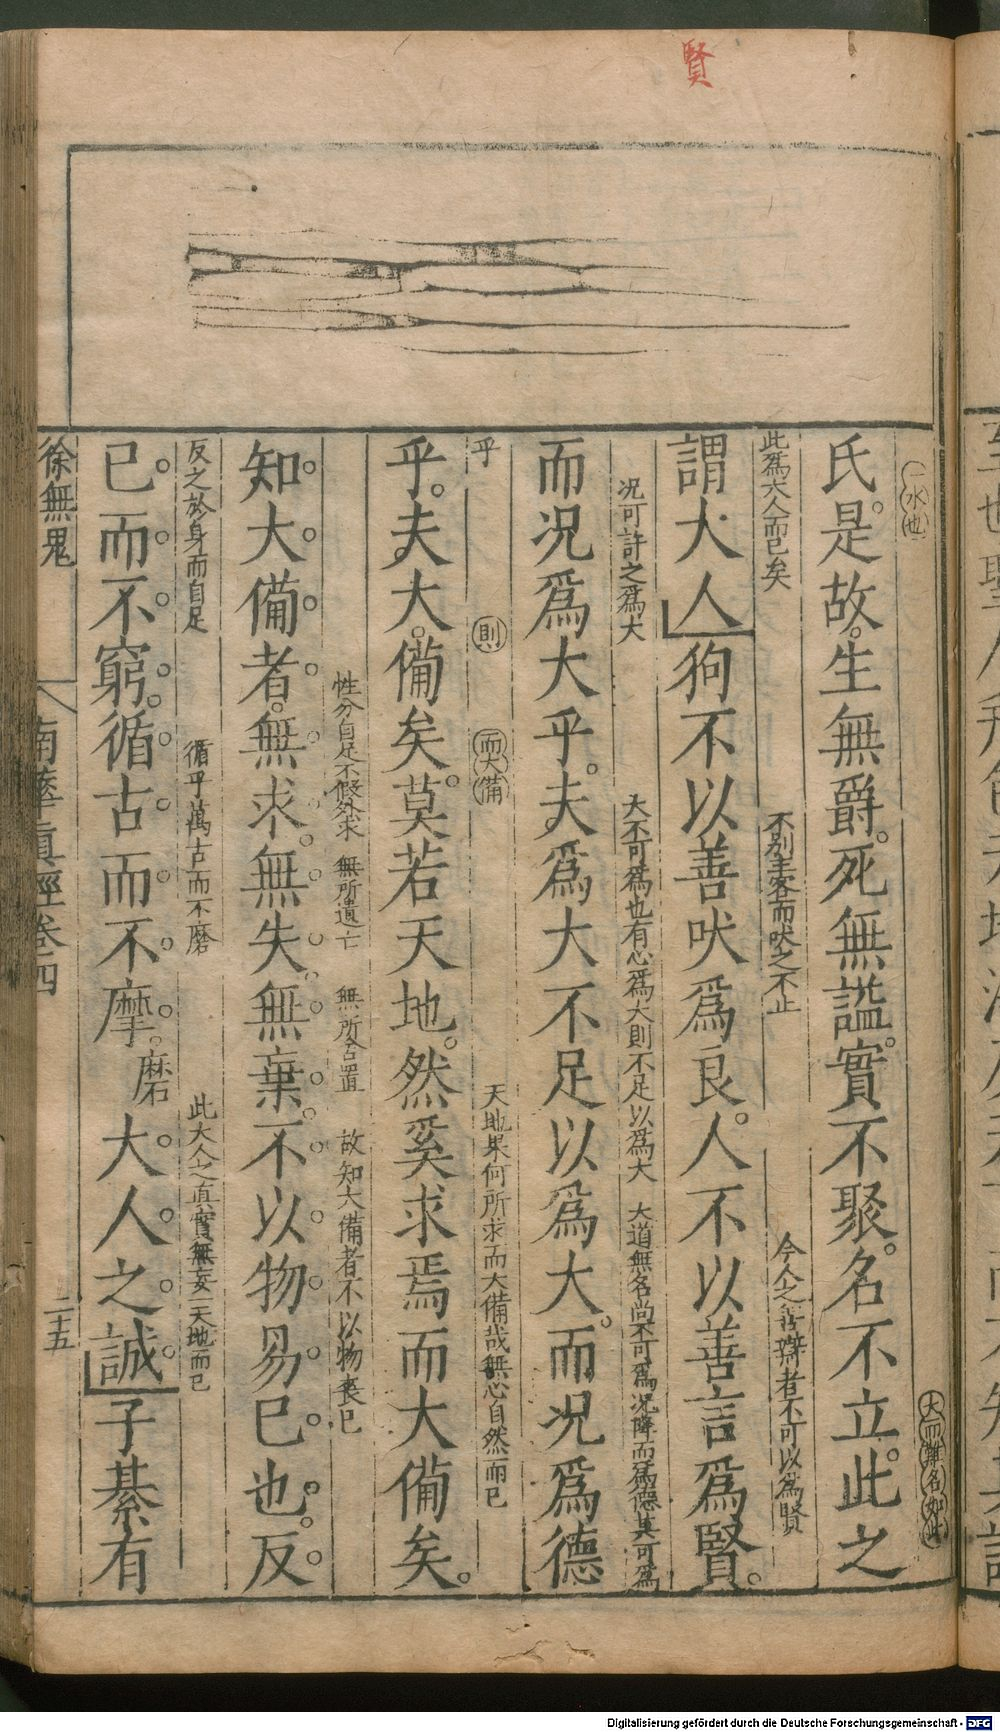 賢
一水也
大而難名如此
氏是故生無爵死無謚實不聚名不立此之
此爲大人而已矣
不別主客而吠之不止
今人之善辯者不可以爲賢
謂大人狗不以善吠爲良人不以善言爲賢
况可許之爲大
大不可爲也有心爲大則不足以爲大
大道無名尚不可爲况降而爲德其可爲
而况爲大乎夫爲大不足以爲大而况爲德
乎
則
而大備
天地果何所求而大備哉無心自然而已
乎夫大備矣莫若天地然奚求焉而大備矣
性分自足不假外求
無所遺亡
無所舍置
故知大備者不以物喪已
知大備者無求無失無棄不以物易已也反
反之於身而自足
循乎萬古而不磨
此大人之真實無妄一天地而已
已而不窮循古而不摩磨大人之誠子綦有
徐無鬼
南華真經卷四
二十五
Digitalisierung gefördert durch die Deutsche Forschungsgemeinschaft - DFG